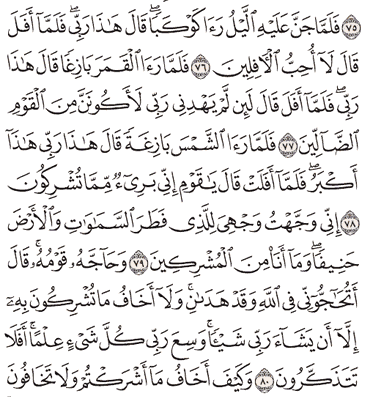 ٧٥ فَلَمَّا جَنَّ عَلَيْهِ ٱلَّيْلُ رَءَا كَوْكَبًاۖ قَالَ هَٰذَا رَبِّيۖ فَلَمَّآ أَفَلَ
قَالَ لَآ أُحِبُّ ٱلْأٓفِلِينَ ٧٦ فَلَمَّا رَءَا ٱلْقَمَرَ بَازِغًا قَالَ هَٰذَا
رَبِّيۖ فَلَمَّآ أَفَلَ قَالَ لَئِن لَّمْ يَهْدِنِي رَبِّي لَأَكُونَنَّ مِنَ ٱلْقَوْمِ
ٱلضَّآلِّينَ ٧٧ فَلَمَّا رَءَا ٱلشَّمْسَ بَازِغَةً قَالَ هَٰذَا رَبِّي هَٰذَآ
أَكْبَرُۖ فَلَمَّآ أَفَلَتْ قَالَ يَٰقَوْمِ إِنِّي بَرِيٓءٌ مِّمَّا تُشْرِكُونَ
٧٨ إِنِّي وَجَّهْتُ وَجْهِيَ لِلَّذِي فَطَرَ ٱلسَّمَٰوَٰتِ وَٱلْأَرْضَ
حَنِيفًاۖ وَمَآ أَنَا۠ مِنَ ٱلْمُشْرِكِينَ ٧٩ وَحَآجَّهُۥ قَوْمُهُۥۚ قَالَ
أَتُحَٰٓجُّوٓنِّي فِي ٱللَّهِ وَقَدْ هَدَىٰنِۚ وَلَآ أَخَافُ مَا تُشْرِكُونَ بِهِۦٓ
إِلَّآ أَن يَشَآءَ رَبِّي شَيْـًٔاۗ وَسِعَ رَبِّي كُلَّ شَيْءٍ عِلْمًاۗ أَفَلَا
تَتَذَكَّرُونَ ٨٠ وَكَيْفَ أَخَافُ مَآ أَشْرَكْتُمْ وَلَا تَخَافُونَ